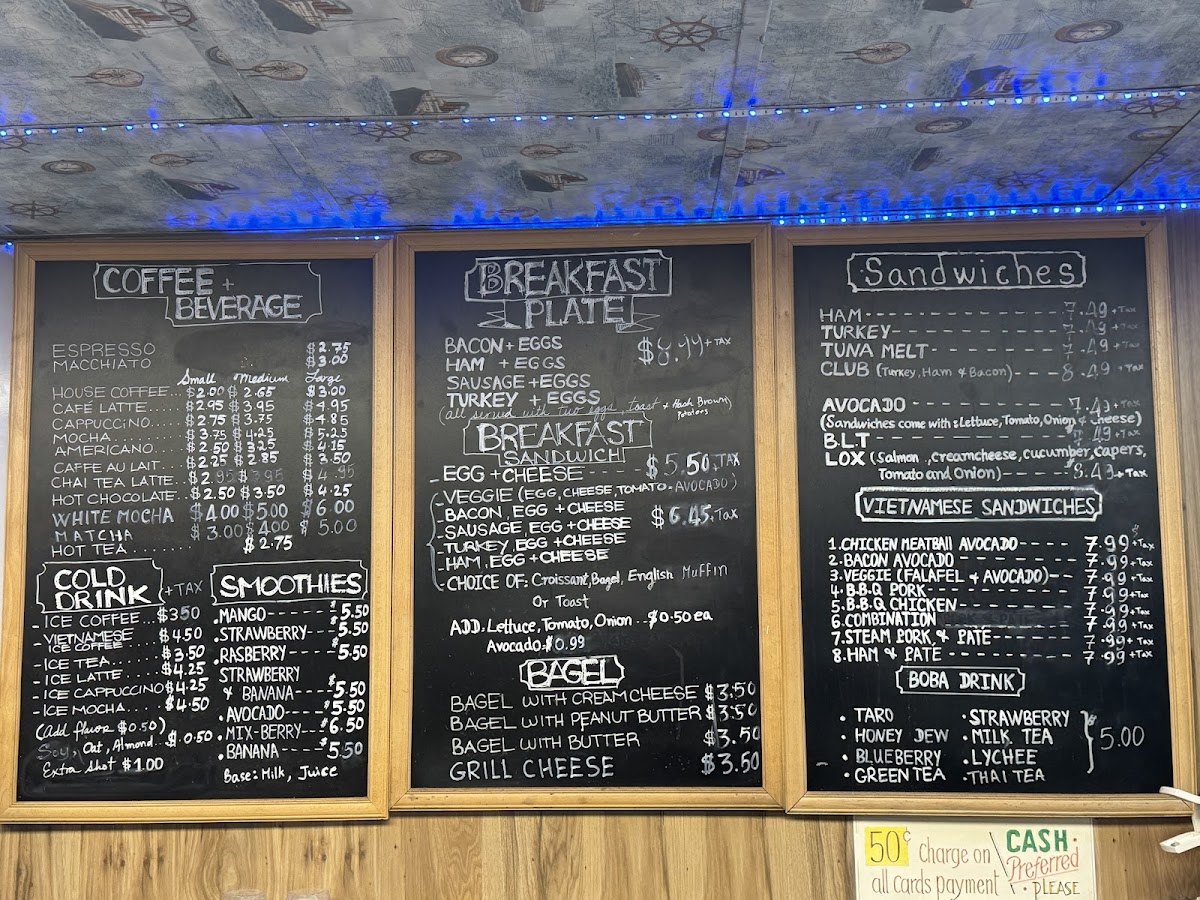 COFFEE +
BEVERAGE
ESPRESSO $2.75
MACCHIATO $3.00
Small Medium Large
HOUSE COFFEE... $2.00 $2.65 $3.00
CAFÉ LATTE..... $2.95 $3.95 $4.95
CAPPUCCINO.... $2.75 $3.75 $4.85
MOCHA......... $3.75 $4.25 $5.25
AMERICANO..... $2.50 $3.25 $4.15
CAFFE AU LAIT... $2.25 $2.85 $3.50
CHAI TEA LATTE.. $2.95 $3.95 $4.95
HOT CHOCOLATE.. $2.50 $3.50 $4.25
WHITE MOCHA $4.00 $5.00 $6.00
MATCHA $3.00 $4.00 $5.00
HOT TEA......... $2.75
COLD
DRINK + TAX
- ICE COFFEE... $3.50
- VIETNAMESE
ICE COFFEE $4.50
- ICE TEA...... $3.50
- ICE LATTE.... $4.25
- ICE CAPPUCCINO $4.25
- ICE MOCHA.... $4.50
(Add flavor $0.50)
Soy, Oat, Almond... $0.50
Extra Shot $1.00
SMOOTHIES
.MANGO------ $5.50
.STRAWBERRY--- $5.50
.RASBERRY---- $5.50
.STRAWBERRY
& BANANA---- $5.50
.AVOCADO---- $5.50
.MIX-BERRY--- $6.50
.BANANA----- $5.50
Base: Milk, Juice
BREAKFAST
PLATE
BACON + EGGS $8.99 + TAX
HAM + EGGS
SAUSAGE + EGGS
TURKEY + EGGS
(all served with two eggs, toast & Hash Brown
Potatoes)
BREAKFAST
SANDWICH
- EGG + CHEESE ------ $5.50 + TAX
- VEGGIE (EGG, CHEESE, TOMATO - AVOCADO)
- BACON, EGG + CHEESE $6.45 + TAX
- SAUSAGE, EGG + CHEESE
- TURKEY, EGG + CHEESE
- HAM, EGG + CHEESE
- CHOICE OF: Croissant, Bagel, English Muffin
Or Toast
ADD. Lettuce, Tomato, Onion.. $0.50 ea
Avocado. $0.99
BAGEL
BAGEL WITH CREAM CHEESE $3.50
BAGEL WITH PEANUT BUTTER $3.50
BAGEL WITH BUTTER $3.50
GRILL CHEESE $3.50
Sandwiches
HAM------------------ 7.49 + Tax
TURKEY--------------- 7.49 + Tax
TUNA MELT------------ 7.49 + Tax
CLUB (Turkey, Ham & Bacon)---- 8.49 + Tax
AVOCADO-------------- 7.49 + Tax
(Sandwiches come with: Lettuce, Tomato, Onion & Cheese)
B.L.T---------------- 7.49 + Tax
LOX (Salmon, creamcheese, cucumber, capers,
Tomato and Onion)---- $8.49 + Tax
VIETNAMESE SANDWICHES
1. CHICKEN MEATBALL AVOCADO---- 7.99 + Tax
2. BACON AVOCADO---------- 7.99 + Tax
3. VEGGIE (FALAFEL & AVOCADO)-- 7.99 + Tax
4. B.B.Q PORK------------- 7.99 + Tax
5. B.B.Q CHICKEN---------- 7.99 + Tax
6. COMBINATION 7.99 + Tax
7. STEAM PORK & PATE------ 7.99 + Tax
8. HAM & PATE------------- 7.99 + Tax
BOBA DRINK
• TARO
• HONEY DEW
• BLUEBERRY
• GREEN TEA
• STRAWBERRY
• MILK TEA
• LYCHEE
• THAI TEA
$5.00
50¢ charge on
all cards payment
CASH
Preferred
• PLEASE